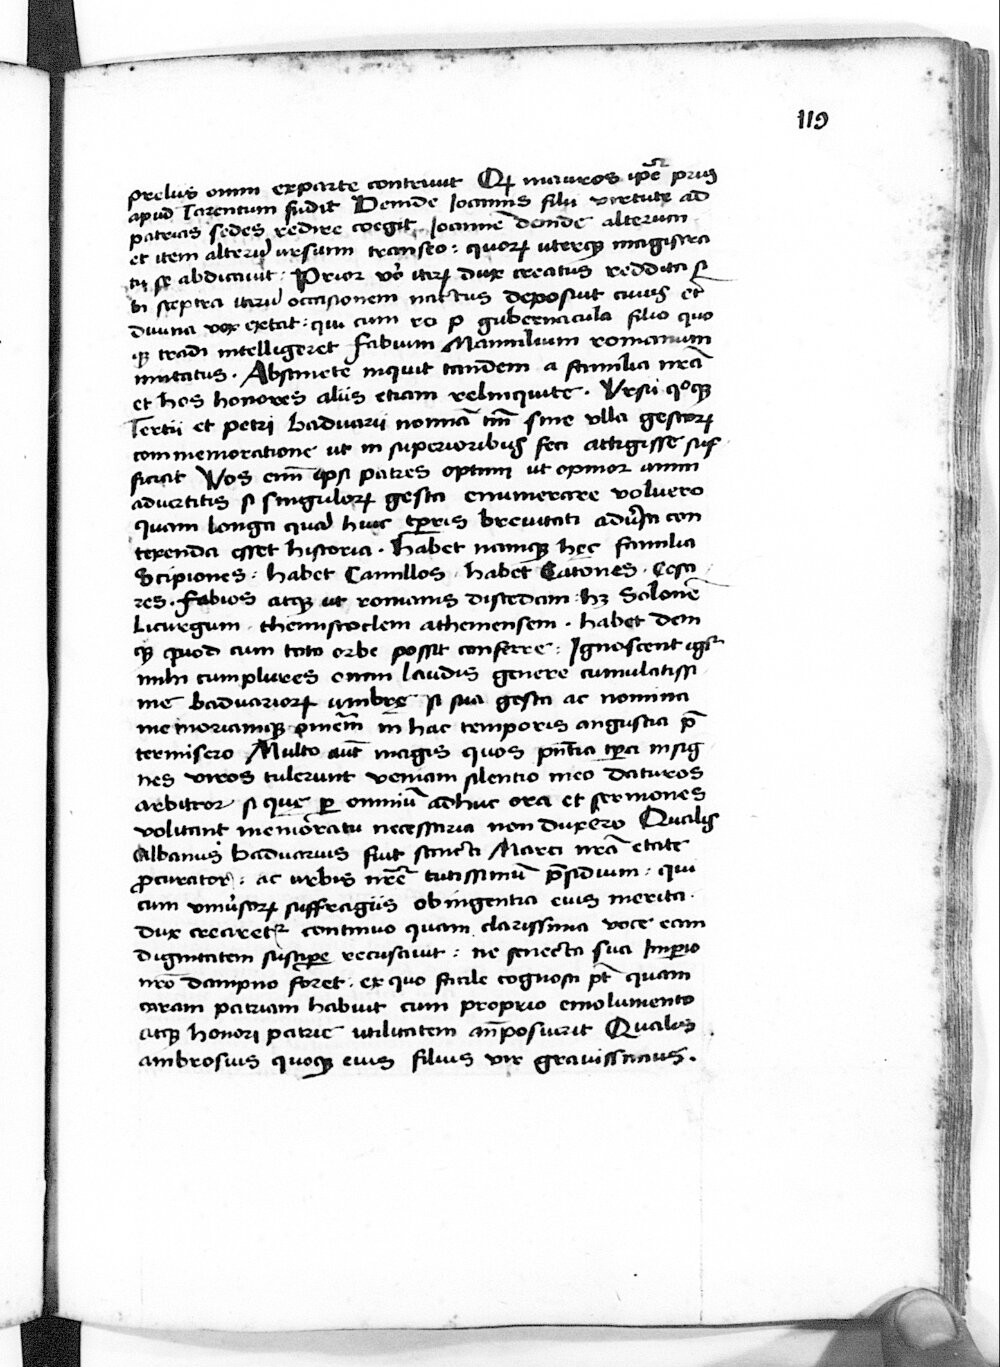 119
prelus omni ex parte contrivit Qꝝ mauros ip̄e prius
apud Tarentum fudit Deinde Ioannis filii virtute ad
patrias sedes redire coegit Ioannē deinde alterum
et item alterū ursum transeo : quorꝝ uterqꝫ magistra
tu se abdicavit : Prior v̄o iterꝝ dux creatus reddita si
bi sceptra iterū occasionem nactus deposuit cuius et
divina vox extat : qui cum rei p gubernacula filio quo
qꝫ tradi intelligeret Fabium Manilium romanum
imitatus . Abstinete inquit tandem a familia nr̄a
et hos honores aliis etiam relinquite . Ursii qºqꝫ
Tertii et petri baduarii nomina tm̄ sine ulla gestorꝝ
commemoratione ut in superioribus feci attigisse suf
ficiat Vos eni̅ ipsi patres optimi ut opinor animi
advertitis si singulorꝝ gesta enumerare voluero
quam longa quā huic tꝑis brevitati adv̄sa con
texenda esset historia . Habet namqꝫ hec familia
Scipiones : habet Camillos . habet Catones . Cesa
res . Fabios atqꝫ ut romanis discedam : hꝫ Solonē
Licurgum . themistoclem atheniensem . habet deni
qꝫ quod cum toto orbe possit conferre : Ignoscent igr̄
mihi cumplures omni laudis genere cumulatissi
me baduariorꝝ umbre si sua gesta ac nomina
memoriamqꝫ omēm in hac temporis angustia p̄
termisero Multo aūt magis quos pn̄tia tꝑa insig
nes viros tulerunt veniam silentio meo daturos
arbitror si que ꝑ omniū adhuc ora et sermones
volitant memoratu necessaria non duxero Qualis
Albanus baduarius fuit sancti Marci nr̄a etate
ꝓcurator : ac urbis nr̄e tutissimū p̄sidium : qui
cum univ̄sorꝝ suffragiis ob ingentia eius merita .
dux crearet᷑ continuo quam clarissima voce eam
dignitatem suscipe recusavit : ne senecta sua Imperio
nr̄o dampno foret . ex quo facile cognosci pt̄ quam
caram patriam habuit cum proprio emolumento
atqꝫ honori patrie utilitatem an̄posuerit Qualis .
ambrosius quoqꝫ eius filius vir gravissimus .